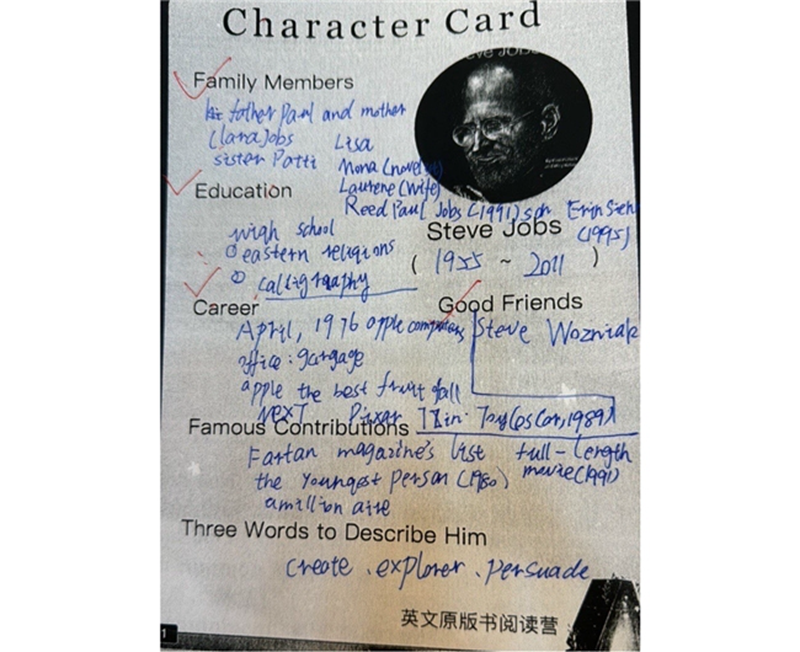 Character Card
Family Members
father Paul and mother
Clara Jobs
sister Patti
Lisa
Mona (novelist)
Laurene (wife)
Reed Paul Jobs (1991) son Erin
(1995)
Education
high school
① eastern religions
② calligraphy
Steve Jobs
( 1955 ~ 2011 )
Career
April, 1976 apple computers
office: gargage
apple the best fruit of all
NEXT Pixar Tin Toy (Oscar, 1989)
Good Friends
Steve Wozniak
Famous Contributions
magazine's list
the youngest person (1980)
a million aire
full-length
movie (1991)
Three Words to Describe Him
create . explorer . persuade
英文原版书阅读营
1